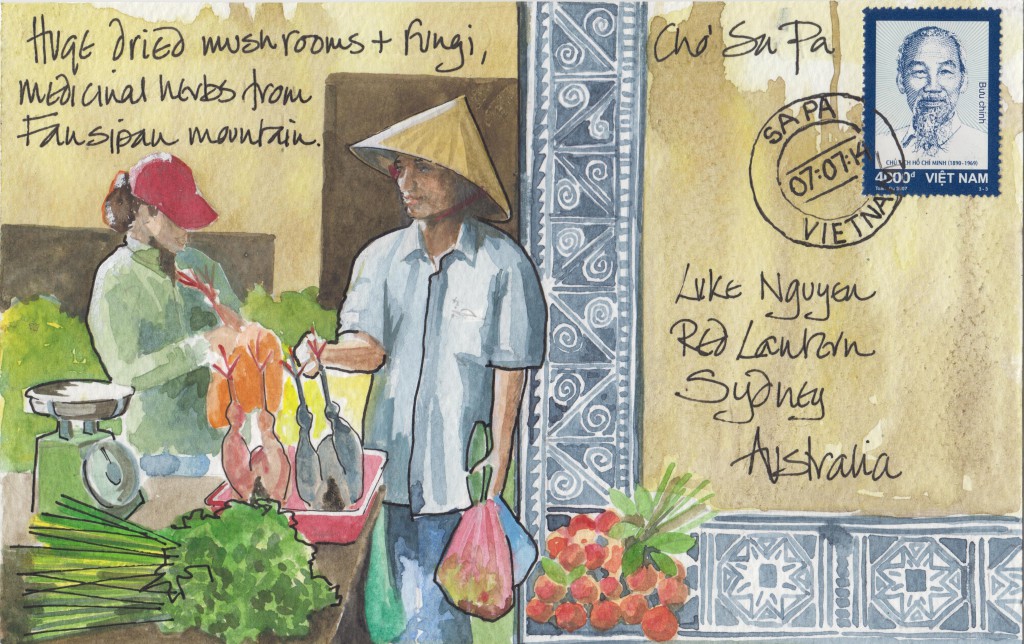 Huge dried mushrooms + fungi,
medicinal herbs from
Fansipan mountain.
Chợ Sa Pa
SA PA
07:07:14
VIETNAM
Bưu chính
CHỦ TỊCH HỒ CHÍ MINH (1890-1969)
4000đ VIỆT NAM
3-3
Luke Nguyen
Red Lantern
Sydney
Australia